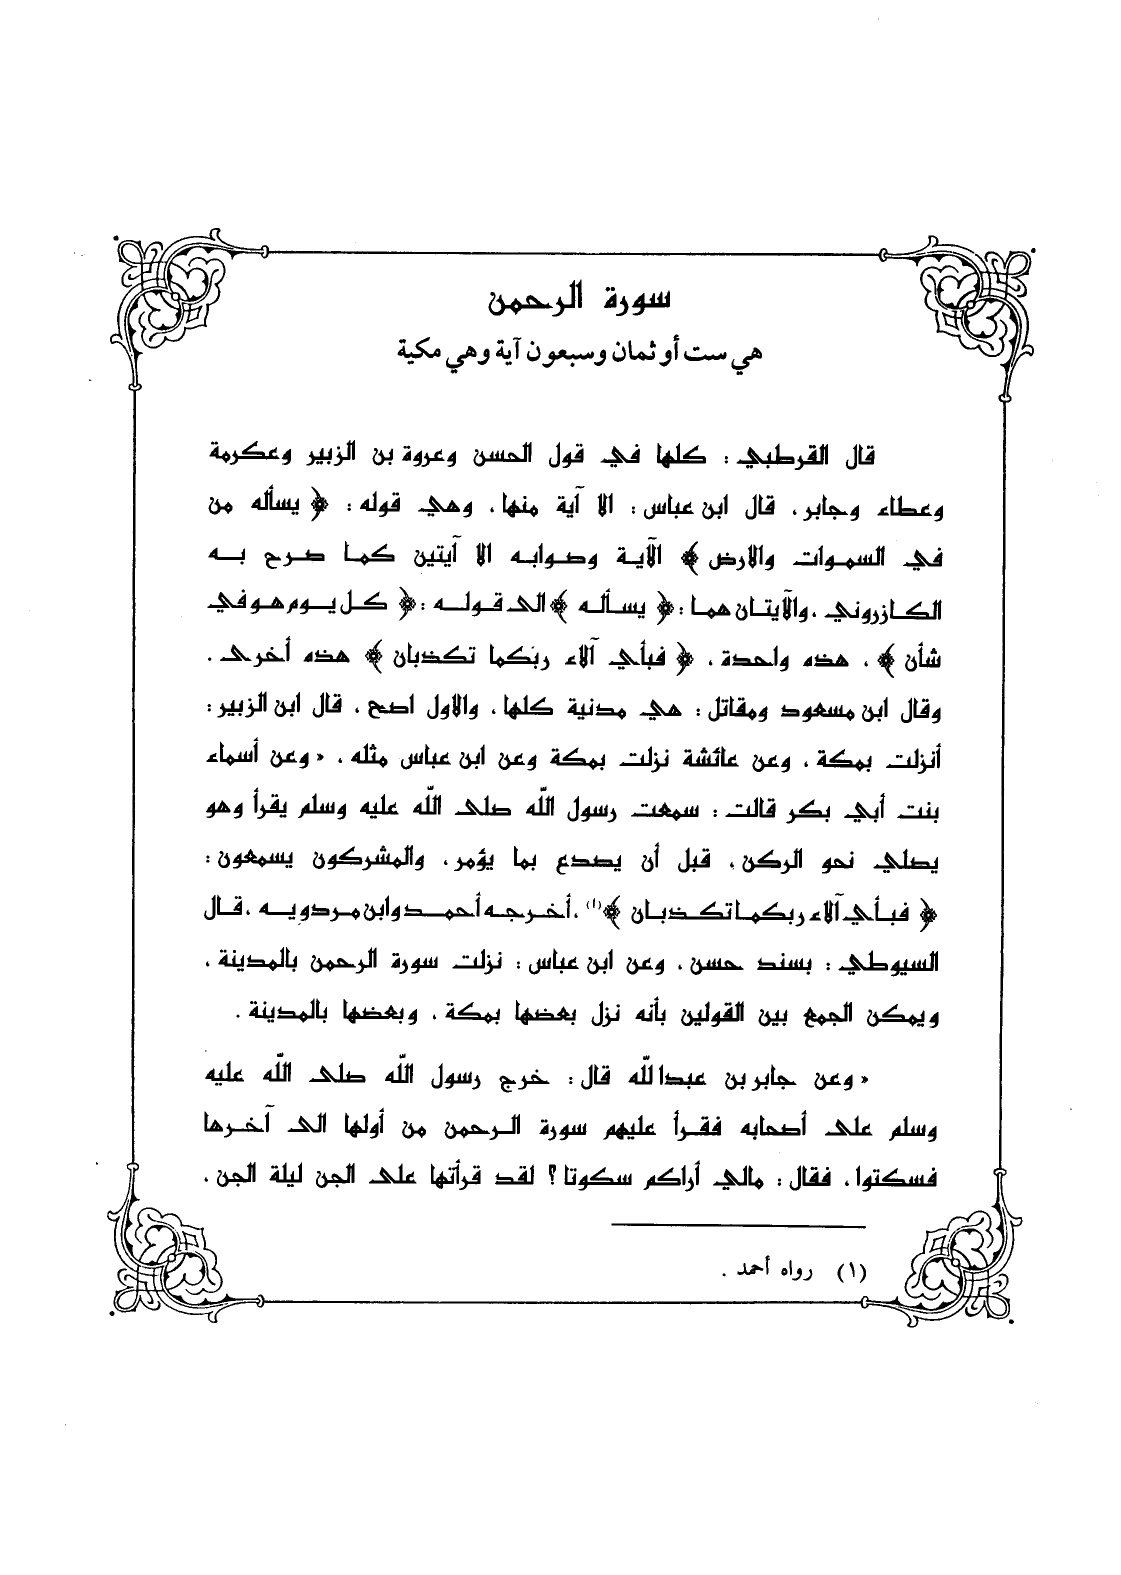 سورة الرحمن
هي ست أو ثمان وسبعون آية وهي مكية
قال القرطبي : كلها في قول الحسن وعروة بن الزبير وعكرمة
وعطاء وجابر ، قال ابن عباس : الا آية منها ، وهي قوله : ﴿ يسأله من
في السموات والارض ﴾ الآية وصوابه الا آيتين كما صرح به
الكازروني ، والآيتان هما : ﴿ يسأله ﴾ الى قوله : ﴿ كل يوم هو في
شأن ﴾ ، هذه واحدة ، ﴿ فبأي آلاء ربكما تكذبان ﴾ هذه أخرى .
وقال ابن مسعود ومقاتل : هي مدنية كلها ، والاول اصح ، قال ابن الزبير :
أنزلت بمكة ، وعن عائشة نزلت بمكة وعن ابن عباس مثله ، « وعن أسماء
بنت أبي بكر قالت : سمعت رسول الله صلى الله عليه وسلم يقرأ وهو
يصلي نحو الركن ، قبل أن يصدع بما يؤمر ، والمشركون يسمعون :
﴿ فبأي آلاء ربكما تكذبان ﴾ (١) ، أخرجه أحمد وابن مردويه ، قال
السيوطي : بسند حسن ، وعن ابن عباس : نزلت سورة الرحمن بالمدينة ،
ويمكن الجمع بين القولين بأنه نزل بعضها بمكة ، وبعضها بالمدينة .
« وعن جابر بن عبدالله قال : خرج رسول الله صلى الله عليه
وسلم على أصحابه فقرأ عليهم سورة الرحمن من أولها الى آخرها
فسكتوا ، فقال : مالي أراكم سكوتا ؟ لقد قرأتها على الجن ليلة الجن ،
(١) رواه أحمد .